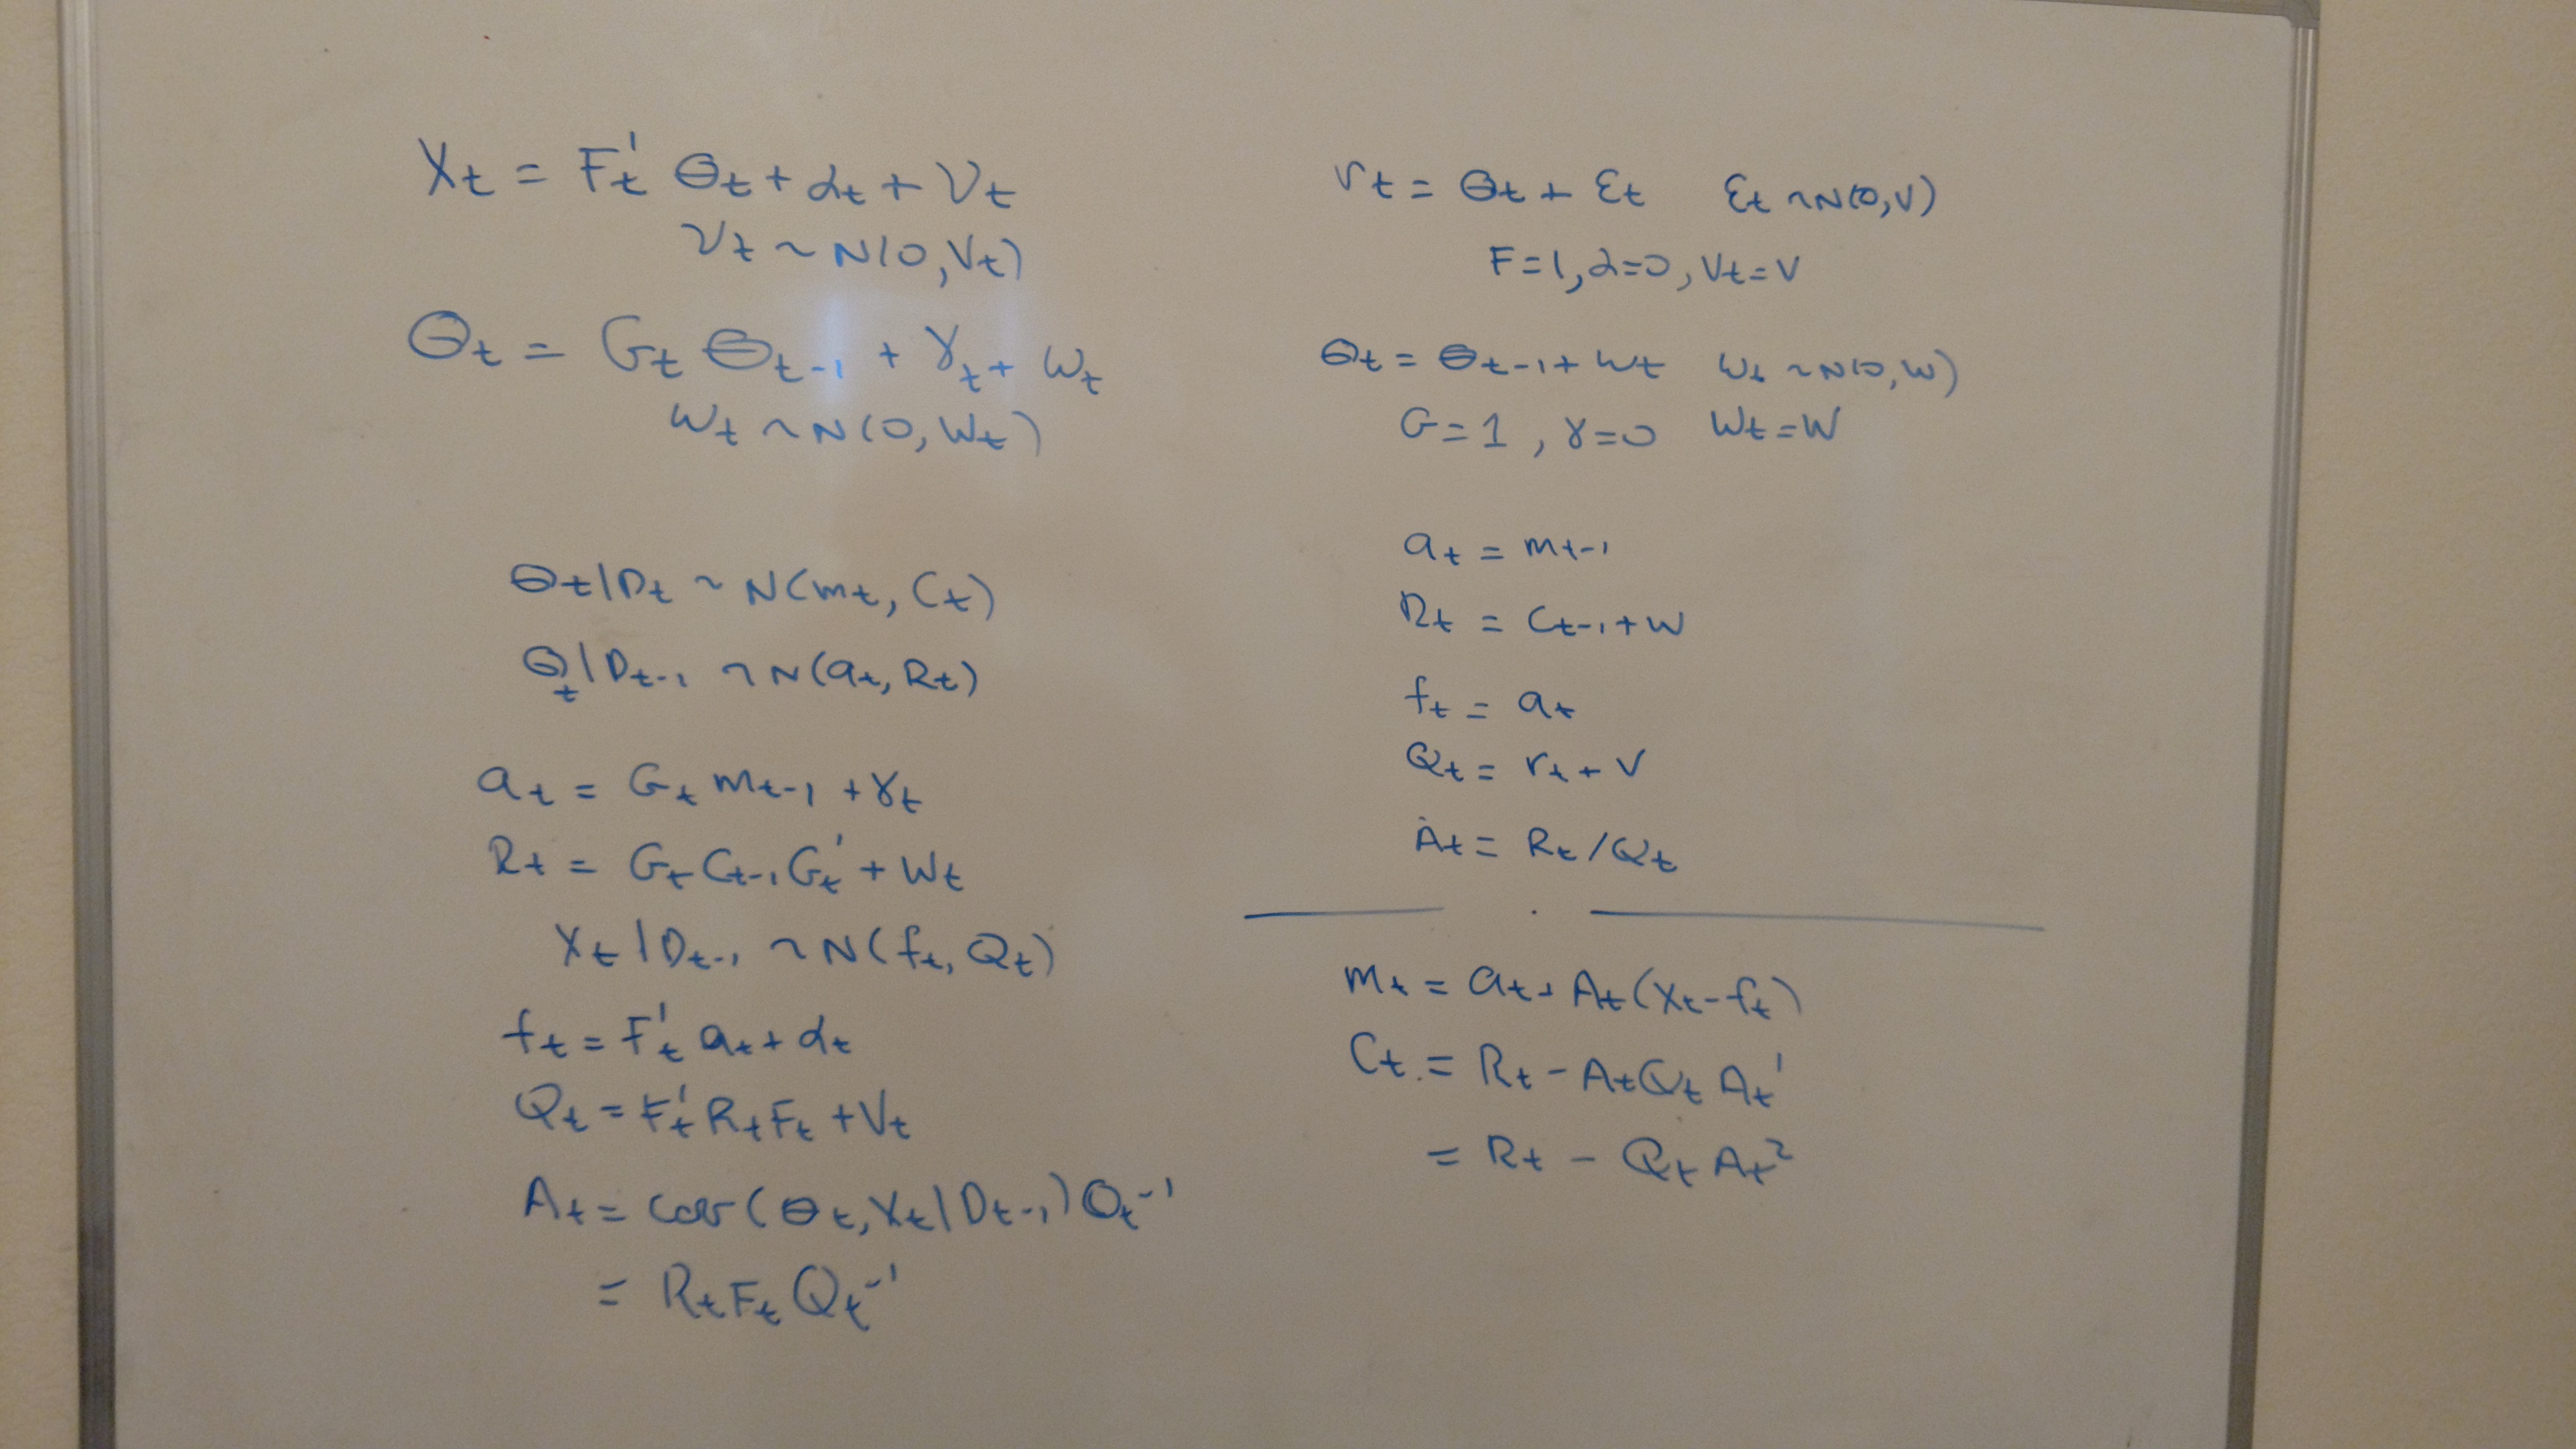 Xt = Ft' θt + αt + νt
νt ~ N(0, Vt)
θt = Gt θt-1 + γt + ωt
ωt ~ N(0, Wt)
θt|Dt ~ N(mt, Ct)
θt|Dt-1 ~ N(at, Rt)
at = Gt mt-1 + γt
Rt = Gt Ct-1 Gt' + Wt
Xt|Dt-1 ~ N(ft, Qt)
ft = Ft' at + αt
Qt = Ft' Rt Ft + Vt
At = cov(θt, Xt|Dt-1) Qt^-1
= Rt Ft Qt^-1
rt = θt + εt εt ~ N(0, V)
F=1, α=0, Vt=V
θt = θt-1 + wt wt ~ N(0, W)
G=1, γ=0 Wt=W
at = mt-1
Rt = Ct-1 + W
ft = at
Qt = rt + V
At = Rt/Qt
mt = at + At(Xt - ft)
Ct = Rt - At Qt At'
= Rt - Qt At²